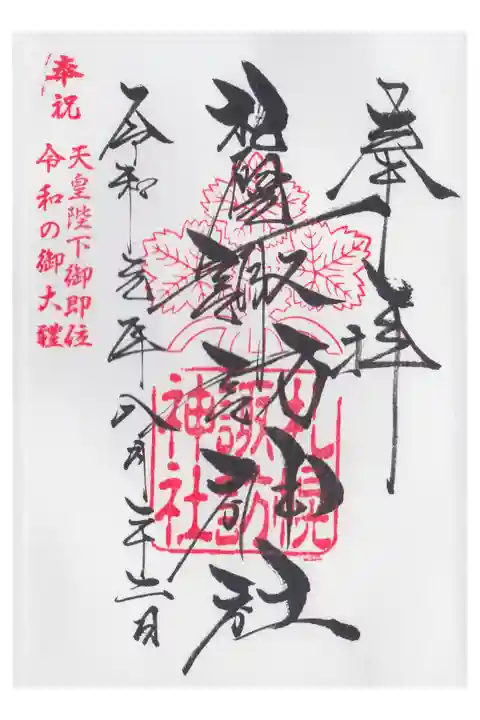 奉拝
諏訪神社
札幌
諏訪
神社
令和元年八月
奉祝
天皇陛下御即位
令和の御大禮